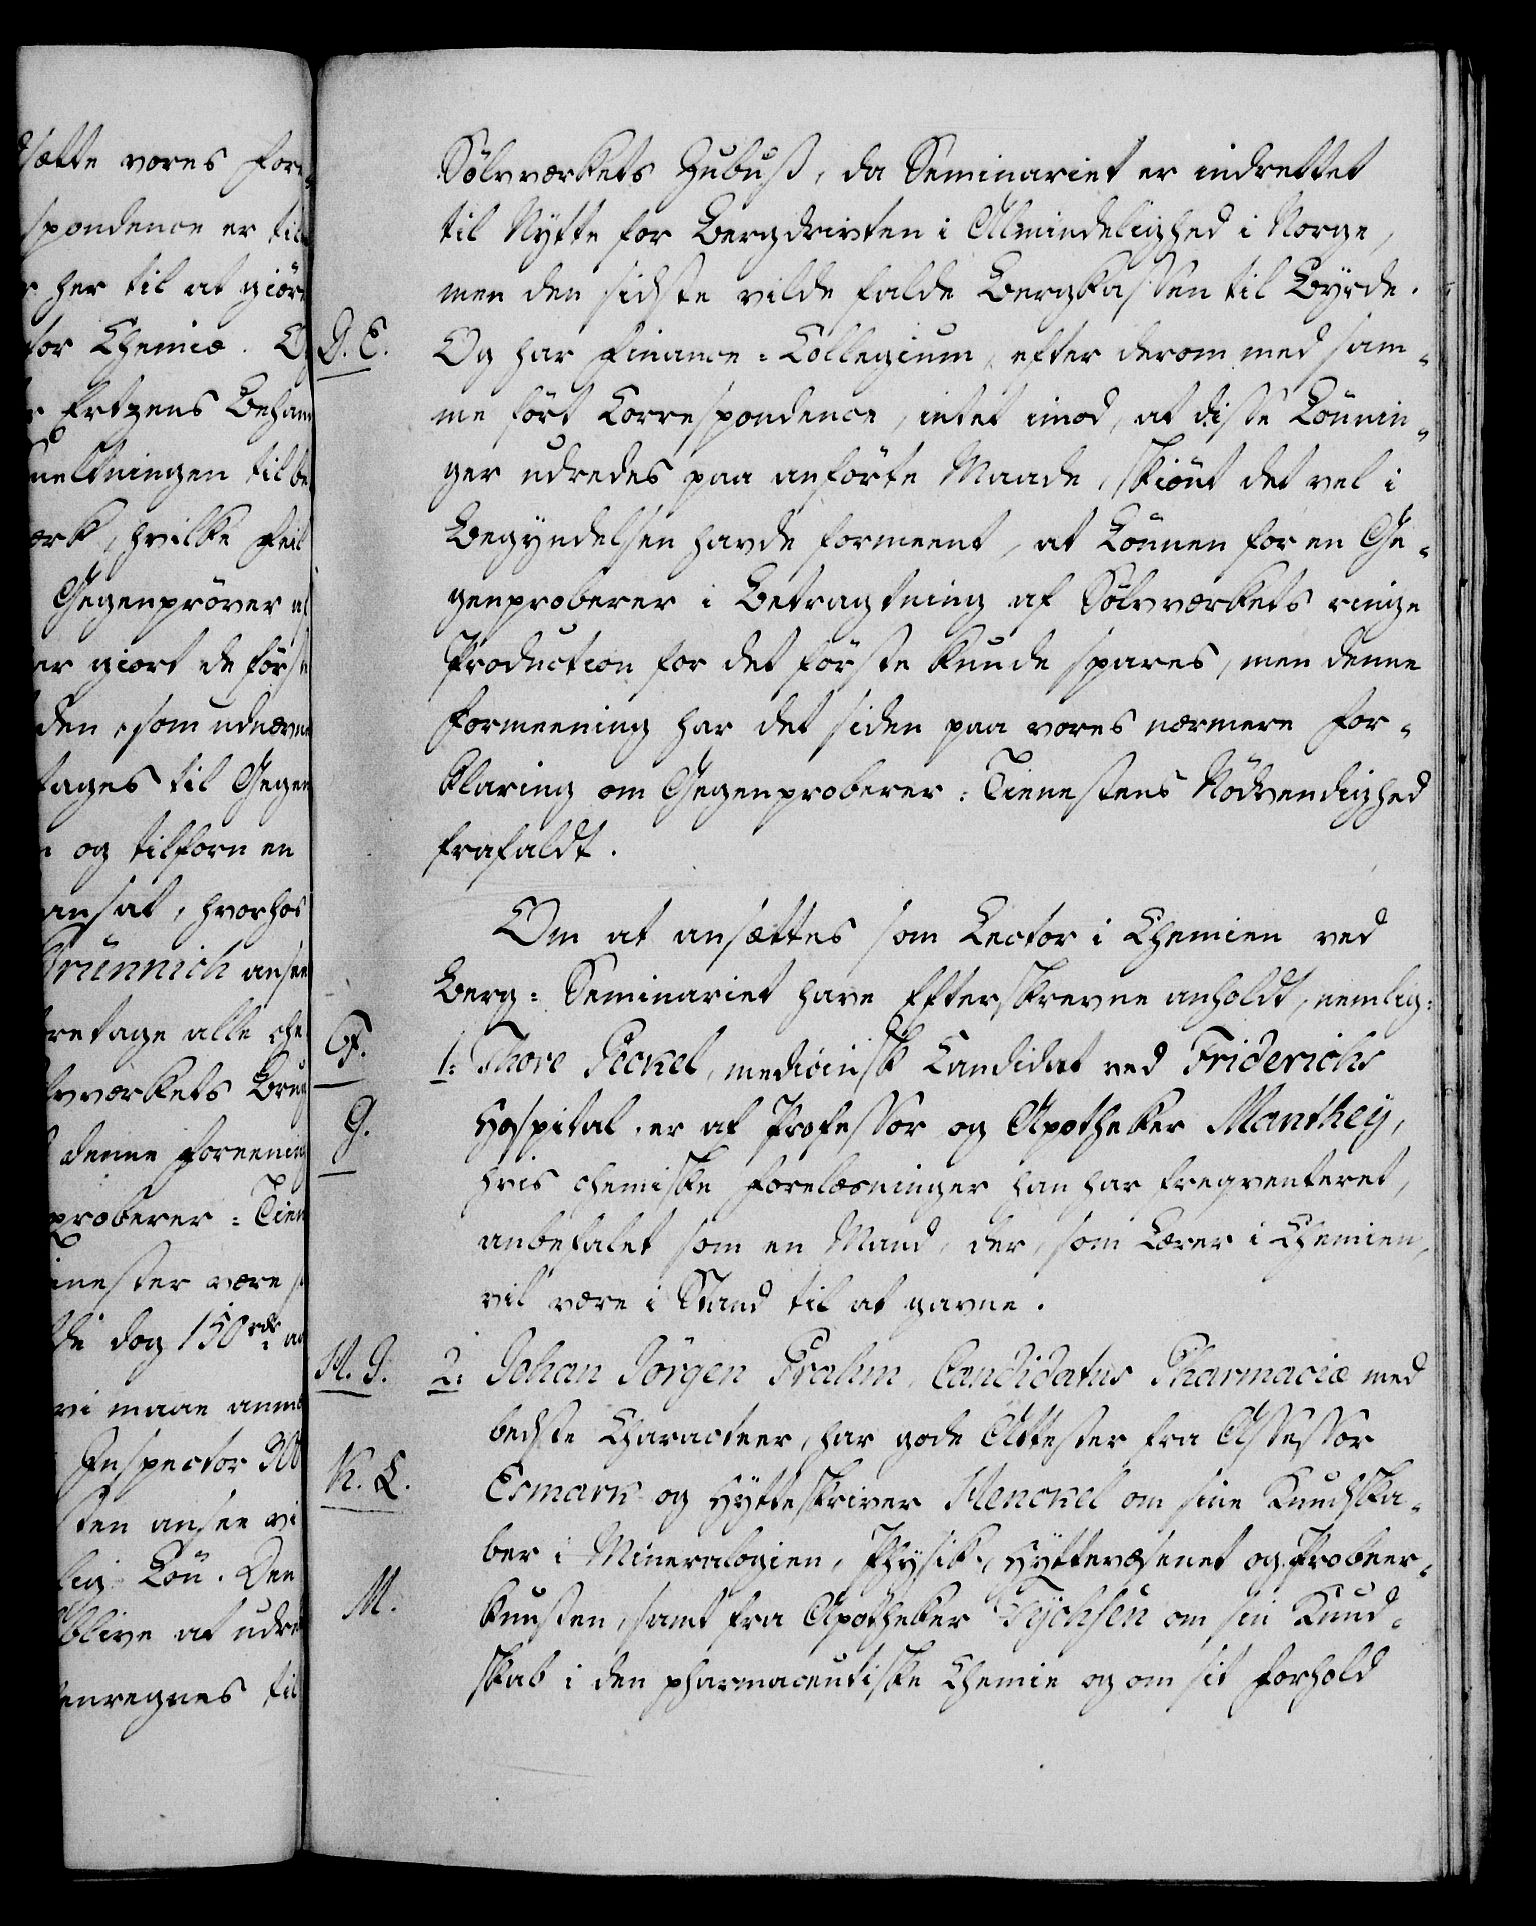 sætte vores for-
spondence er til
r her til at giöre
tor Chemiæ. O
r Ertzens Behan
meltningen til be
ærk, hvilke feil
Gegenpröver
er giort de förs
den, som udnævn
tages til Gegen
og tilforn en
ansat, hvorhos
Brünnich ansee
retage alle che
lvværkets Brug
denne Foreening
proberer-Tien
inester være
de dog 150 rdr.
vi maae anm
Inspector
sten ansee vi
lig Lön. Den
blive at udre
enregnes til
Sölvværkets Zubuß, da Seminariet er indrettet
til Nytte for Bergdriften i Almindelighed i Norge,
men den sidste vilde falde Bergkassen til Byrde.
D. E. Og har Finance-Collegium, efter derom med sam-
me fört Correspondence, intet imod, at disse Lönnin-
ger udredes paa anförte Maade, skiönt det vel i
Begyndelsen havde formeent, at Lönnen for en Ge-
genproberer i Betragtning af Sölvværkets ringe
Production for det förste kunde spares, men denne
Formeening har det siden paa vores nærmere For-
klaring om Gegenproberer-Tienestens Nödvendighed
frafaldt.
Om at ansættes som Lector i Chemien ved
Berg-Seminariet have Efterskrevne anholdt, nemlig:
F. 1: Thore Pickel, medicinsk Candidat ved Friderichs
G. Hospital, er af Professor og Apotheker Manthey,
hvis chemiske Forelæsninger han har freqventeret,
anbefalet som en Mand, der, som Lærer i Chemien,
vil være i Stand til at gavne.
H. I. 2: Johan Jörgen Prahm, Candidatus Pharmaciæ med
bedste Characteer, har gode Attester fra Assessor
K. L. Esmark og Hytteskriver Henckel om sine Kundska-
ber i Mineralogien, Physik, Hyttevæsenet og Probeer-
M. kunsten, samt fra Apotheker Tychsen om sin Kund-
skab i den pharmaceutiske Chemie og om sit Forhold